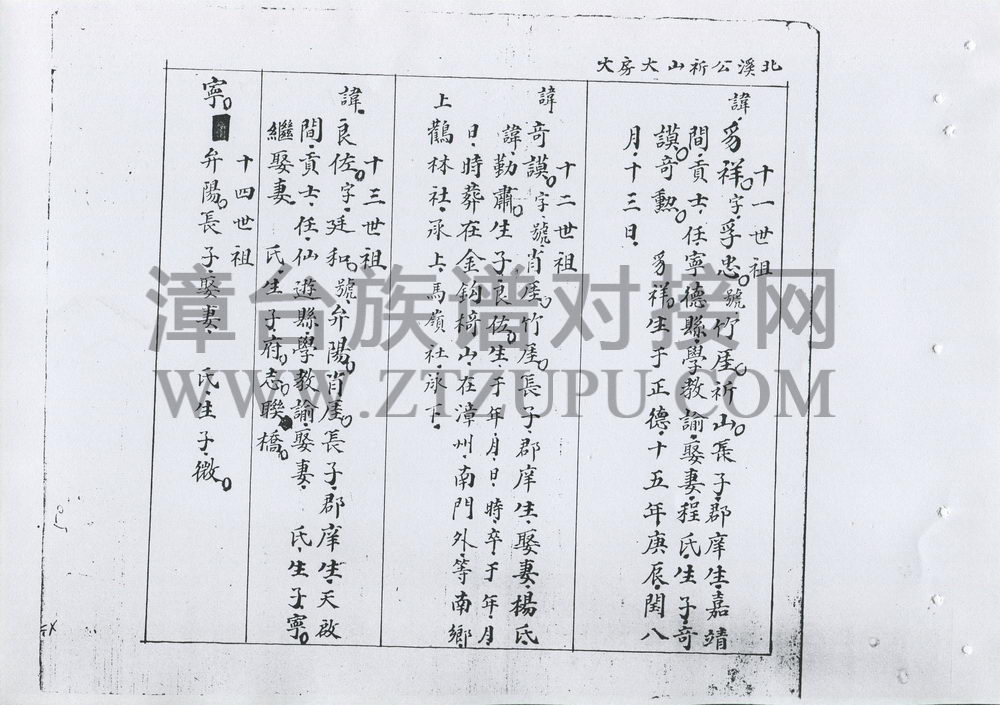 北溪公祈山大房大
十一世祖
諱為祥字孚忠號竹厓祈山長子郡庠生嘉靖
間貢士任寧德縣學教諭娶妻程氏生子奇
謨奇勲 為祥生于正德十五年庚辰閏八
月十三日
十二世祖
諱奇謨字號肖厓竹厓長子郡庠生娶妻楊氏
諱勤肅生子良佐生于年月日時卒于年月
日時葬在金鈎椅山在漳州南門外等南鄉
上鸛林社承上馬嶺社承下
十三世祖
諱良佐字廷和號弁陽肖厓長子郡庠生天啟
間貢士任仙遊縣學教諭娶妻 氏生子寧
繼娶妻 氏生子府志聯橋
十四世祖
寧 弁陽長子娶妻 氏生子徵
漳台族谱对接网
WWW.ZTZUPU.COM